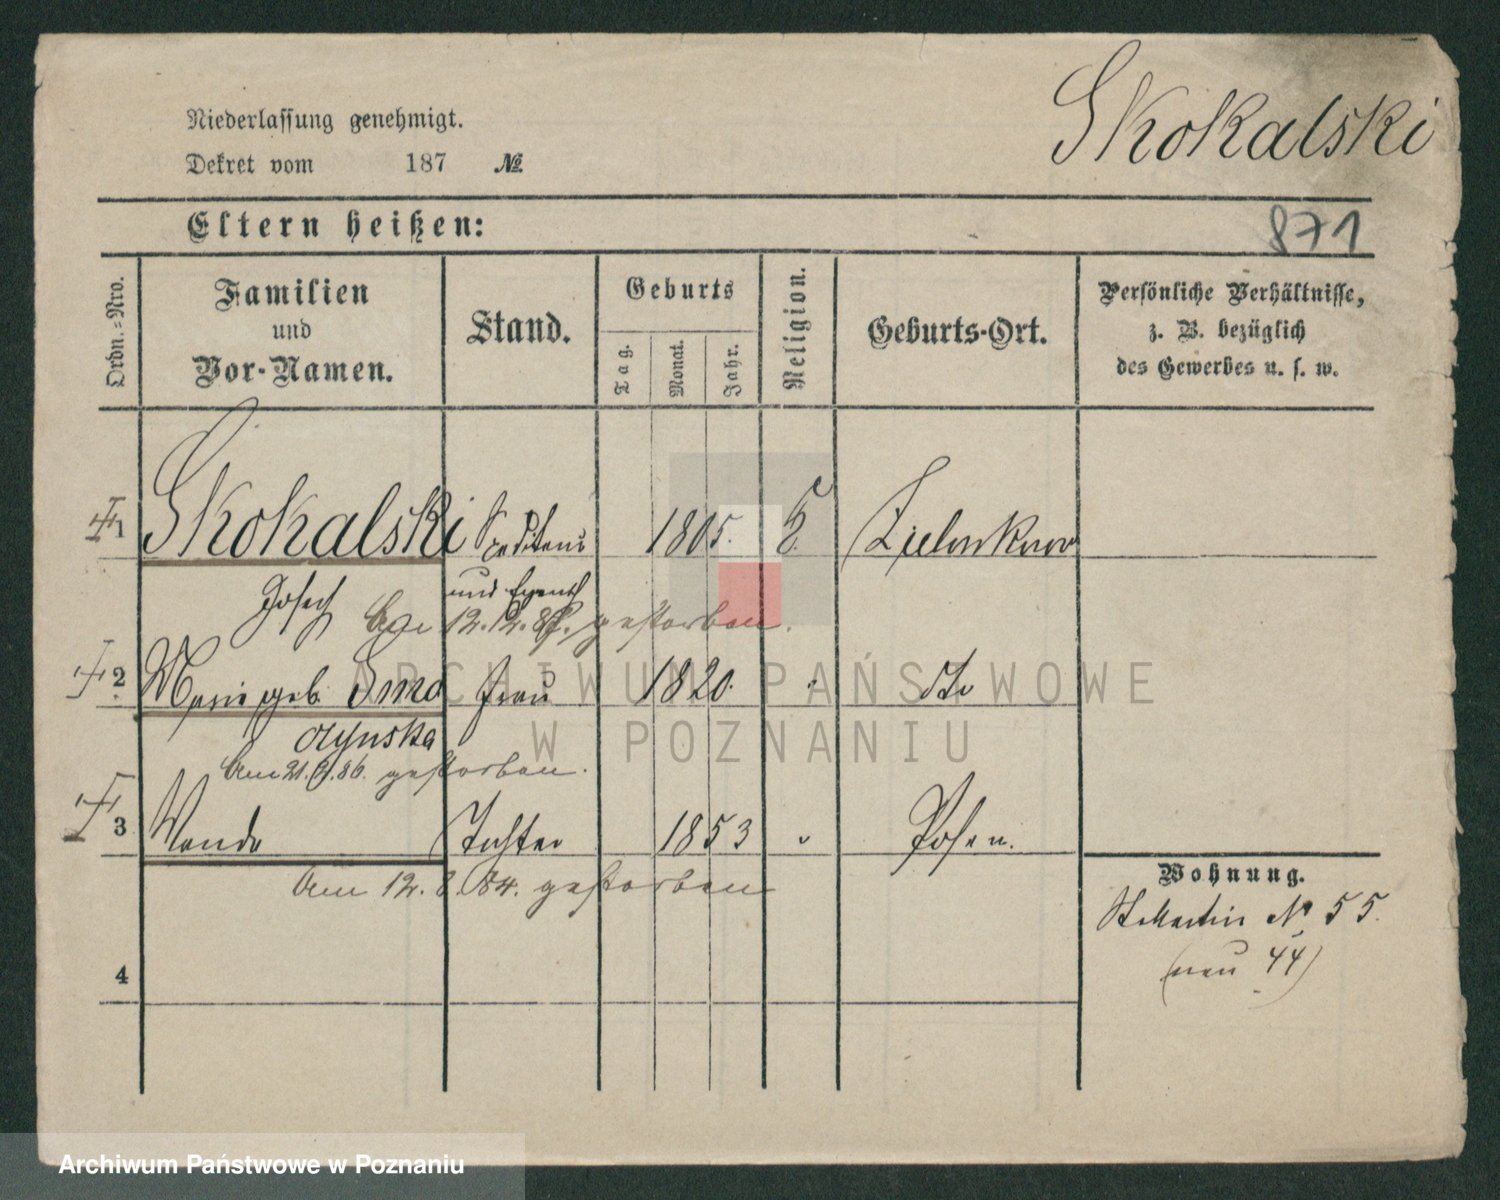 Skokalski
Niederlassung genehmigt.
Dekret vom 187 №
Eltern heißen:
871
Ordn.=Nro.
Familien
und
Vor-Namen.
Stand.
Geburts
Tag.
Monat.
Jahr.
Religion.
Geburts-Ort.
Persönliche Verhältnisse,
z. B. bezüglich
des Gewerbes u. s. w.
1 Skokalski Spediteur 1805.
Josef und
Am 12.12. gestorben.
2 Marie geb. Smo Frau 1820. dto
czynska
Am 21.9.86. gestorben.
3 Wanda Tochter 1853 " Posen.
Am 12.8.84. gestorben
4
Wohnung.
St. Martin № 55.
(neu 44)
ARCHIWUM PAŃSTWOWE
W POZNANIU
Archiwum Państwowe w Poznaniu